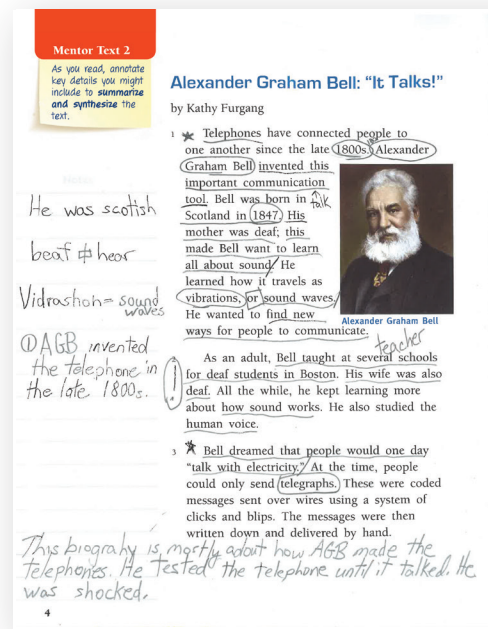 Mentor Text 2
As you read, annotate
key details you might
include to summarize
and synthesize the
text.
Alexander Graham Bell: “It Talks!”
by Kathy Furgang
1 Telephones have connected people to
one another since the late 1800s. Alexander
Graham Bell invented this
important communication
tool. Bell was born in
talk
Scotland in 1847. His
mother was deaf; this
made Bell want to learn
all about sound. He
learned how it travels as
vibrations, or sound waves.
He wanted to find new
ways for people to communicate.
Alexander Graham Bell
He was scotish
beaf hear
Vidrashon = sound
waves
① AGB invented
the telephone in
the late 1800s.
teacher
As an adult, Bell taught at several schools
for deaf students in Boston. His wife was also
deaf. All the while, he kept learning more
about how sound works. He also studied the
human voice.
3 Bell dreamed that people would one day
“talk with electricity.” At the time, people
could only send telegraphs. These were coded
messages sent over wires using a system of
clicks and blips. The messages were then
written down and delivered by hand.
This biograhy is mostly adout how AGB made the
telephones. He tested the telephone until it talked. He
was shocked.
4